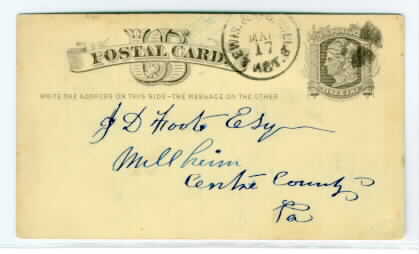 POSTAL CARD
MAY
17
WRITE THE ADDRESS ON THIS SIDE - THE MESSAGE ON THE OTHER
J D Foote Esq
Millheim
Centre County
Pa